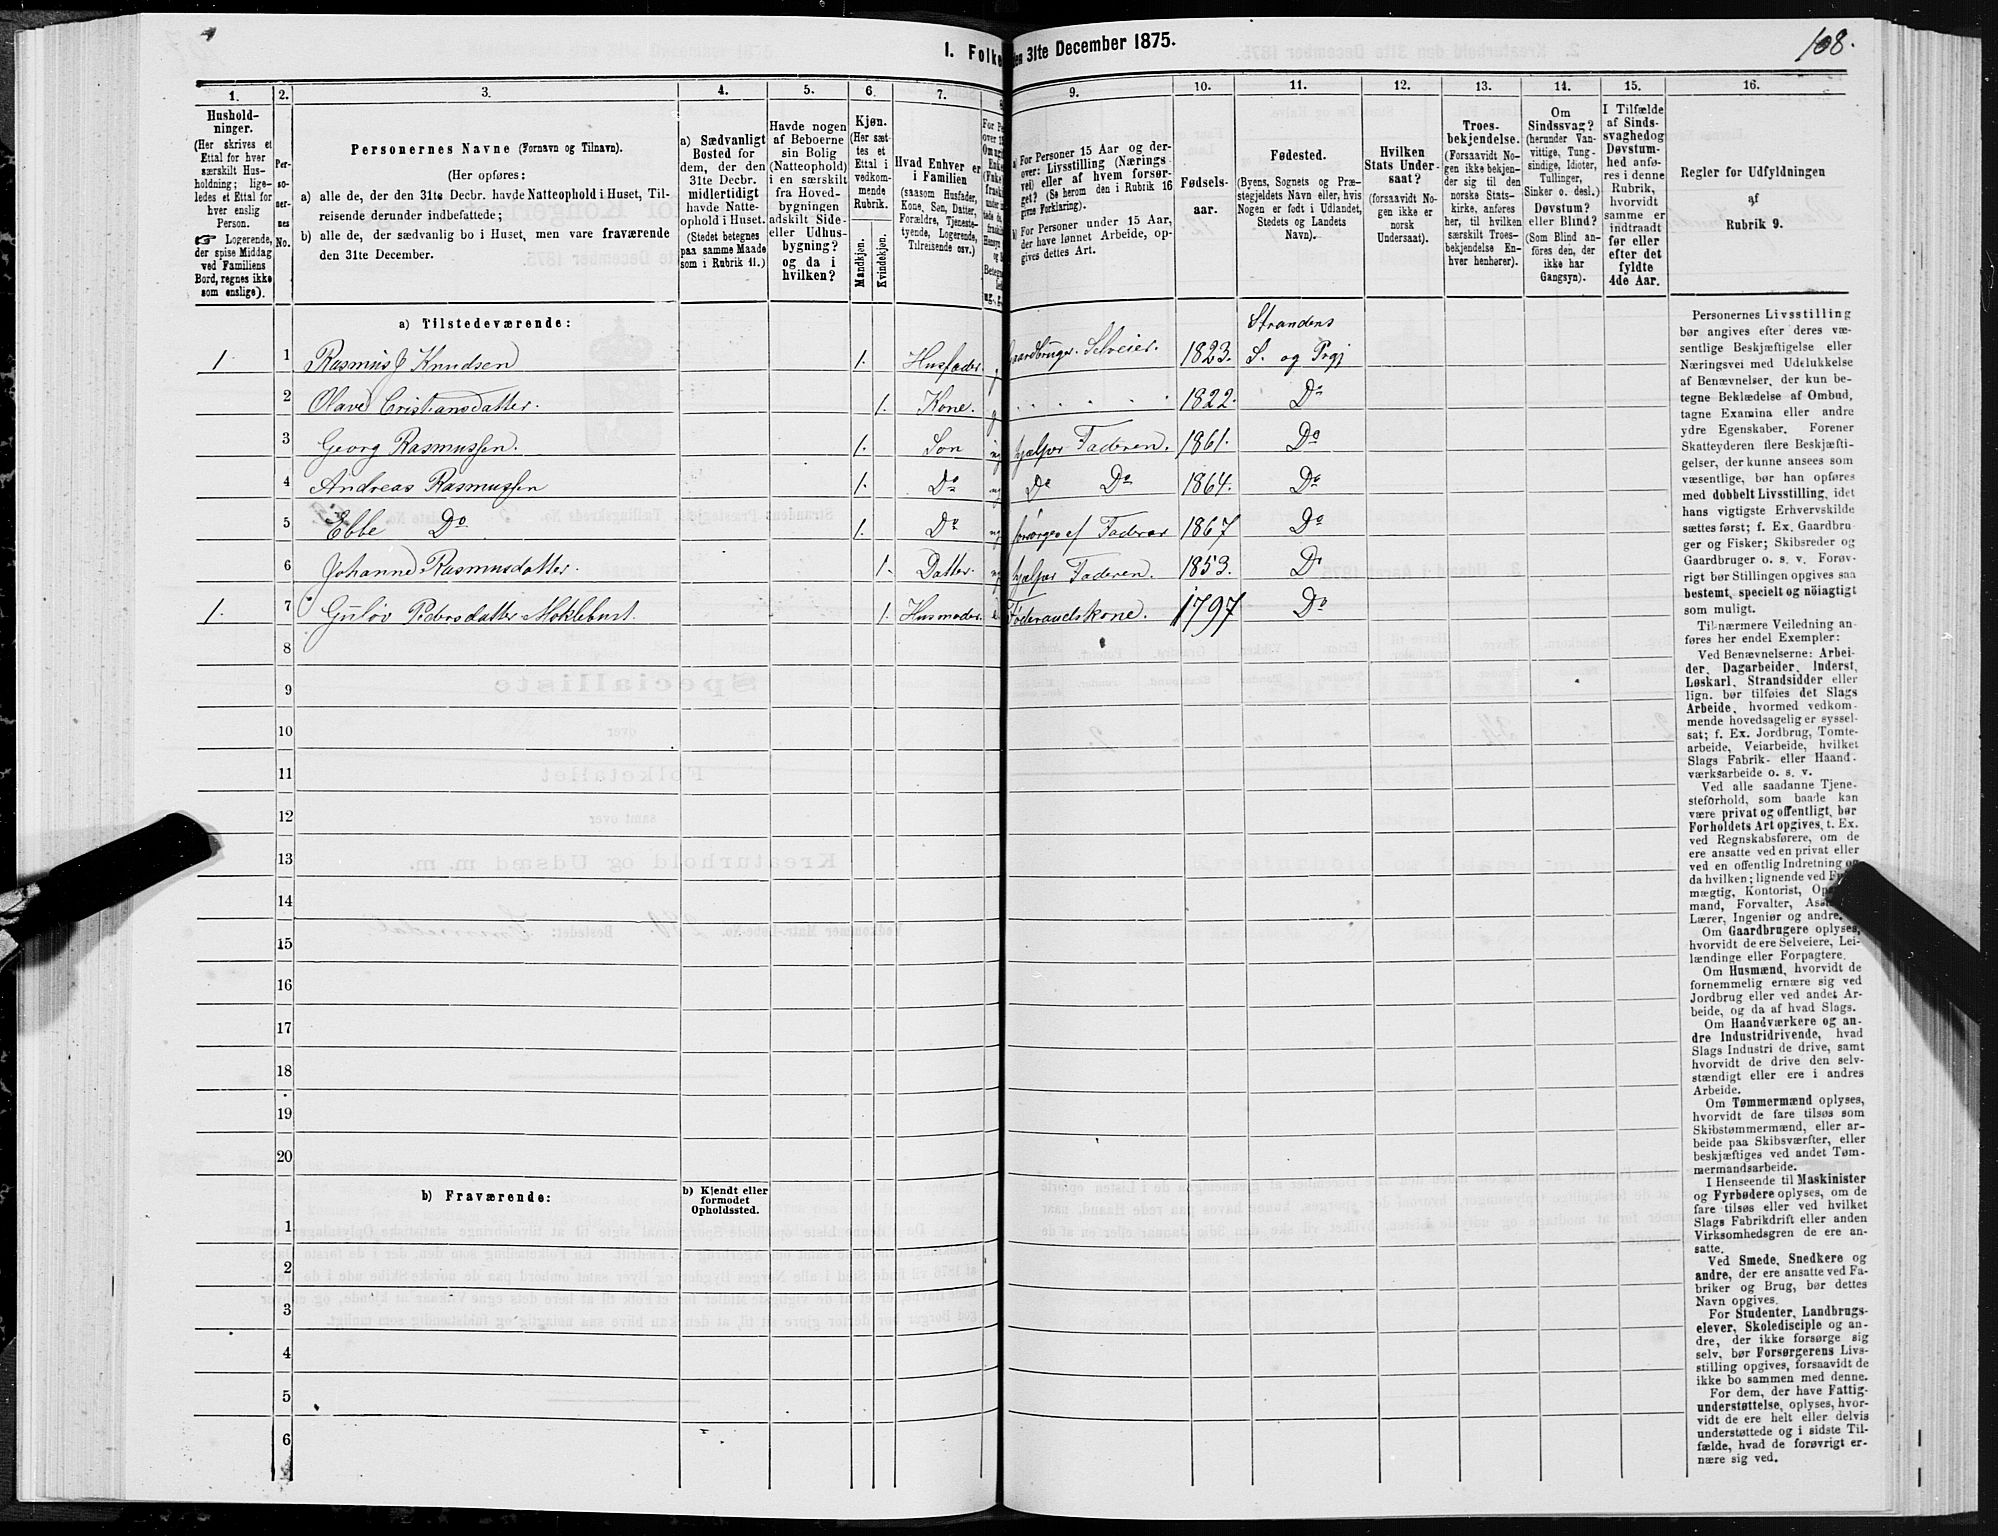 108.
I. Folke
den 31te December 1875.
1.
2.
3.
4.
5.
6.
7.
8
9.
10.
11.
12.
13.
14.
15.
16.
Hushold-
ninger.
(Her skrives et
Ettal for hver
særskilt Hus-
holdning; lige-
ledes et Ettal for
hver enslig
Person.
☞ Logerende,
der spise Middag
ved Familiens
Bord, regnes ikke
som enslige).
Per-
so-
ner-
nes
No.
Personernes Navne (Fornavn og Tilnavn).
(Her opføres:
a) alle de, der den 31te Decbr. havde Natteophold i Huset, Til-
reisende derunder indbefattede;
b) alle de, der sædvanlig bo i Huset, men vare fraværende
den 31te December.
a) Sædvanligt
Bosted for
dem, der den
31te Decbr.
midlertidigt
havde Natte-
ophold i Huset.
(Stedet betegnes
paa samme Maade
som i Rubrik 11.)
Havde nogen
af Beboerne
sin Bolig
(Natteophold)
i en særskilt
fra Hoved-
bygningen
adskilt Side-
eller Udhus-
bygning?
og da i
hvilken?
Kjøn.
(Her sæt-
tes et
Ettal i
vedkom-
mende
Rubrik.
Mandkjøn.
Kvindekjøn.
Hvad Enhver er
i Familien
(saasom Husfader,
Kone, Søn, Datter,
Forældre, Tjeneste-
tyende, Logerende,
Tilreisende osv.)
a) For Personer 15 Aar og der-
over: Livsstilling (Nærings-
vei) eller af hvem forsør-
get? (Se herom den i Rubrik 16
givne Forklaring).
b) For Personer under 15 Aar,
der have lønnet Arbeide, op-
gives dettes Art.
Fødsels-
aar.
Fødested.
(Byens, Sognets og Præ-
stegjeldets Navn eller, hvis
Nogen er født i Udlandet,
Stedets og Landets
Navn).
Hvilken
Stats Under-
saat?
(forsaavidt No-
gen ikke er
norsk
Undersaat).
Troes-
bekjendelse.
(Forsaavidt No-
gen ikke bekjen-
der sig til den
norske Stats-
kirke, anføres
her, til hvilken
særskilt Troes-
bekjendelse En-
hver henhører).
Om
Sindssvag?
(herunder Van-
vittige, Tung-
sindige, Idioter,
Tullinger,
Sinker o. desl.)
Døvstum?
eller Blind?
(Som Blind an-
føres den, der
ikke har
Gangsyn).
I Tilfælde
af Sinds-
svaghed og
Døvstum-
hed anfø-
res i denne
Rubrik,
hvorvidt
samme er
indtraadt
før eller
efter det
fyldte
4de Aar.
Regler for Udfyldningen
af
Rubrik 9.
a) Tilstedeværende:
Strandens
1. 1 Rasmus J Knudsen 1. Husfader. g Gaardbruger. Selveier. 1823. S. og Prgj
2 Olave Cristiansdatter. 1. Kone. g 1822. Do
3 Georg Rasmussen. 1. Søn ug hjælper Faderen. 1861. Do
4 Andreas Rasmussen 1. Do ug Do Do 1864. Do
5 Ebbe Do 1. Do ug forsørges af Faderen 1867 Do
6 Johanne Rasmusdatter. 1. Datter. ug hjelper Faderen. 1853. Do
1. 7 Guløv Pedersdatter Moklebust. 1. Husmoder. Føderaadskone. 1797 Do
8
9
10
11
12
13
14
15
16
17
18
19
20
b) Fraværende:
b) Kjendt eller
formodet
Opholdssted.
1
2
3
4
5
6
Personernes Livsstilling
bør angives efter deres væ-
sentlige Beskjæftigelse eller
Næringsvei med Udelukkelse
af Benævnelser, der kun be-
tegne Beklædelse af Ombud,
tagne Examina eller andre
ydre Egenskaber. Forener
Skatteyderen flere Beskjæfti-
gelser, der kunne ansees som
væsentlige, bør han opføres
med dobbelt Livsstilling, idet
hans vigtigste Erhvervskilde
sættes først; f. Ex. Gaardbru-
ger og Fisker; Skibsreder og
Gaardbruger o. s. v. Forøv-
rigt bør Stillingen opgives saa
bestemt, specielt og nöiagtigt
som muligt.
Til nærmere Veiledning an-
føres her endel Exempler:
Ved Benævnelserne: Arbei-
der, Dagarbeider, Inderst,
Løskarl, Strandsidder eller
lign. bør tilføies det Slags
Arbeide, hvormed vedkom-
mende hovedsagelig er syssel-
sat; f. Ex. Jordbrug, Tomte-
arbeide, Veiarbeide, hvilket
Slags Fabrik- eller Haand-
værksarbeide o. s. v.
Ved alle saadanne Tjene-
steforhold, som baade kan
være privat og offentligt, bør
Forholdets Art opgives, t. Ex.
ved Regnskabsførere, om de
ere ansatte ved en privat eller
ved en offentlig Indretning og
da hvilken; lignende ved
mægtig, Kontorist,
mand, Forvalter,
Lærer, Ingeniør og andre.
Om Gaardbrugere oplyses,
hvorvidt de ere Selveiere, Lei-
lændinge eller Forpagtere.
Om Husmænd, hvorvidt de
fornemmelig ernære sig ved
Jordbrug eller ved andet Ar-
beide, og da af hvad Slags.
Om Haandværkere og an-
dre Industridrivende, hvad
Slags Industri de drive, samt
hvorvidt de drive den selv-
stændigt eller ere i andres
Arbeide.
Om Tømmermænd oplyses,
hvorvidt de fare tilsøs som
Skibstømmermænd, eller ar-
beide paa Skibsværfter, eller
beskjæftiges ved andet Tøm-
mermandsarbeide.
I Henseende til Maskinister
og Fyrbødere oplyses, om de
fare tilsøs eller ved hvilket
Slags Fabrikdrift eller anden
Virksomhedsgren de ere an-
satte.
Ved Smede, Snedkere og
andre, der ere ansatte ved Fa-
briker og Brug, bør dettes
Navn opgives.
For Studenter, Landbrugs-
elever, Skoledisciple og an-
dre, der ikke forsørge sig
selv, bør Forsørgerens Livs-
stilling opgives, forsaavidt de
ikke bo sammen med denne.
For dem, der have Fattig-
understøttelse, oplyses, hvor-
vidt de ere helt eller delvis
understøttede og i sidste Til-
fælde, hvad de forøvrigt er-
nære sig ved.